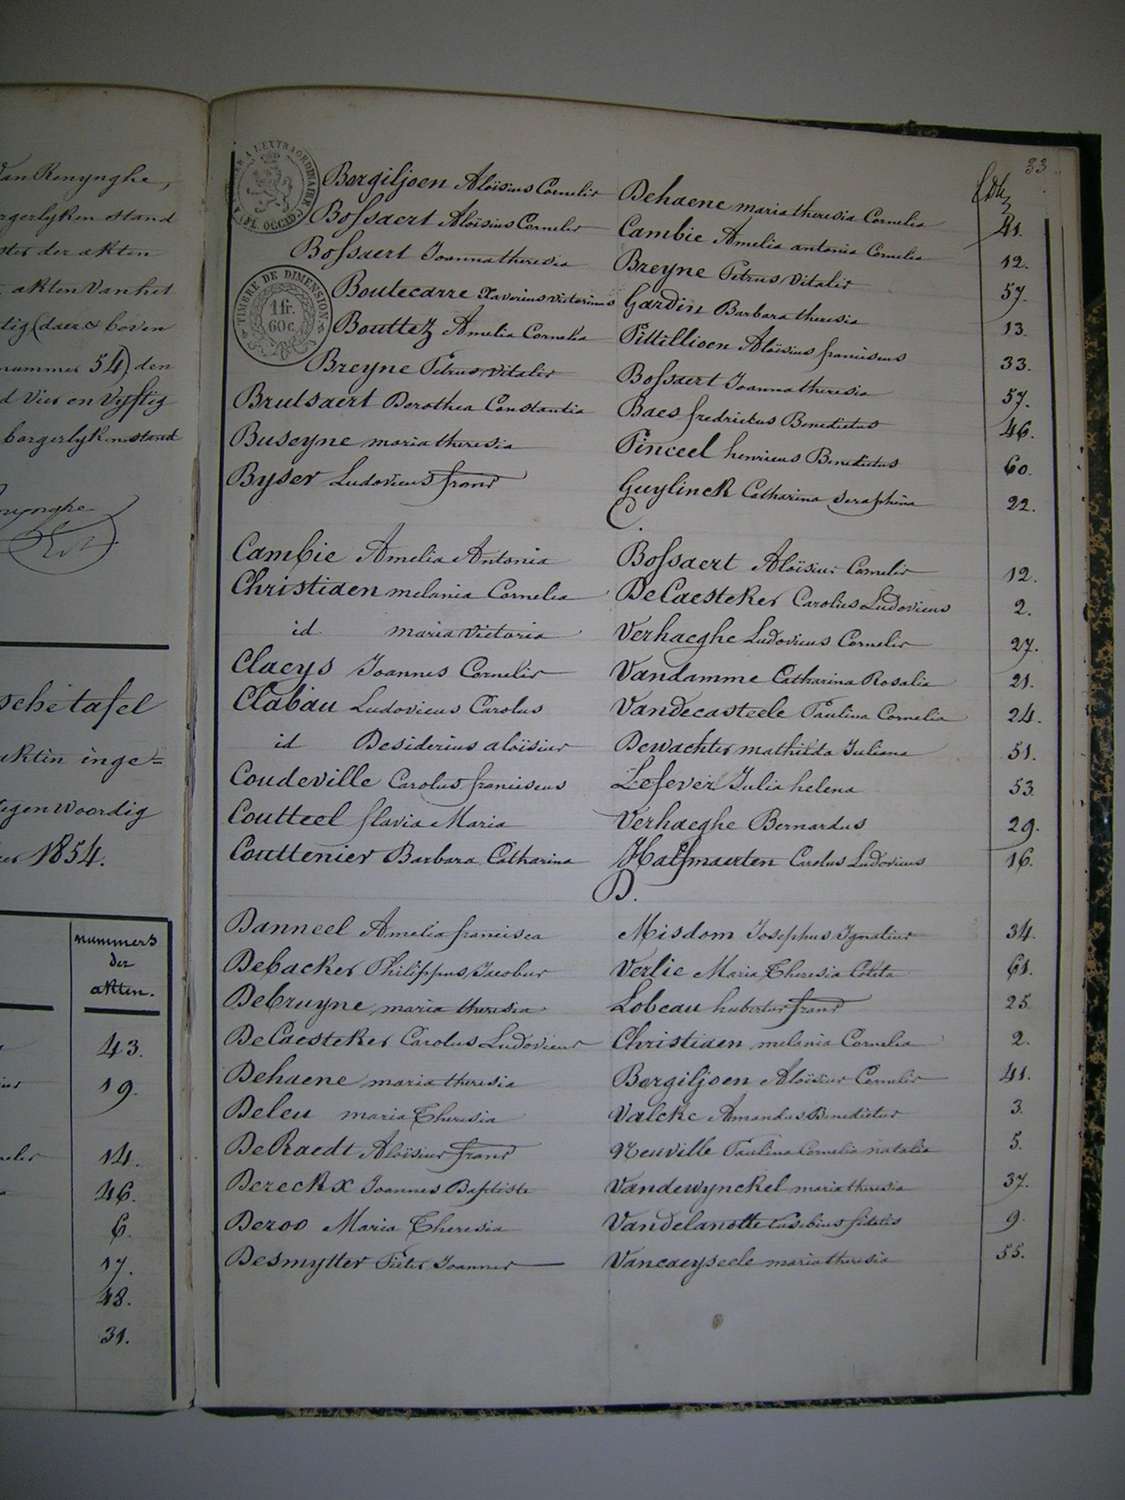 Van Renynghe,
borgerlyken stand
der akten
akten Van het
tig (daer & boven
nummer 54) den
Vier en Vyftig
borgerlyken stand
sche tafel
akten inge=
tegenwoordig
1854.
nummers
der
akten.
43.
19.
14.
46.
6.
17.
48.
31.
33.
TIMBRE A L'EXTRAORDINAIRE
FL. OCCID.
TIMBRE DE DIMENSION
1 fr.
60 c.
Borgiljoen Aloïsius Cornelis Dehaene maria theresia Cornelia 41.
Bossaert Aloïsius Cornelis Cambie Amelia antonia Cornelia 12.
Bossaert Joanna theresia Breyne Petrus Vitalis 57.
Boutecarre Xaverius victorinus Gardin Barbara theresia 13.
Bouttez Amelia Cornelia Pittillioen Aloïsius franciscus 33.
Breyne Petrus Vitalis Bossaert Joanna theresia 57.
Brutsaert Dorothea Constantia Baes fredricus Benedictus 46.
Buseyne maria theresia Pinceel henricus Benedictus 60.
Byser Ludovicus frans Guylinck Catharina Seraphina 22.
C.
Cambie Amelia Antonia Bossaert Aloïsius Cornelis 12.
Christiaen melania Cornelia DeCaesteker Carolus Ludovicus 2.
id maria victoria Verhaeghe Ludovicus Cornelis 27.
Claeys Joannes Cornelis Vandamme Catharina Rosalia 21.
Clabau Ludovicus Carolus Vandecasteele Paulina Cornelia 24.
id Desiderius aloïsius Dewachter mathilda Juliana 51.
Coudeville Carolus franciscus Lefever Julia helena 53.
Coutteel flavia Maria Verhaeghe Bernardus 29.
Couttenier Barbara Catharina Halfmaerten Carolus Ludovicus 16.
D.
Danneel Amelia francisca Misdom Josephus Ignatius 34.
Debacker Philippus Jacobus Verlie Maria Theresia Coleta 61.
Debruyne maria theresia Lobeau hubertus frans 25.
DeCaesteker Carolus Ludovicus Christiaen melania Cornelia 2.
Dehaene maria theresia Borgiljoen Aloïsius Cornelis 41.
Deleu maria Theresia Valcke Amandus Benedictus 3.
DeRaedt Aloïsius frans Neuville Paulina Cornelia natalia 5.
Dereckx Joannes Baptiste Vandewynckel maria theresia 37.
Deroo Maria Theresia Vandelanotte Eusebius fidelis 9.
Desmytter Pieter Joannes Vancaeyseele maria theresia 55.